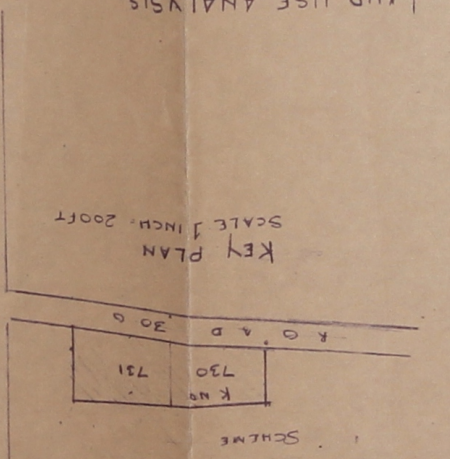 SCHEME
K NO
730 731
ROAD
KEY PLAN
SCALE 1 INCH = 200FT
LAND USE ANALYSIS